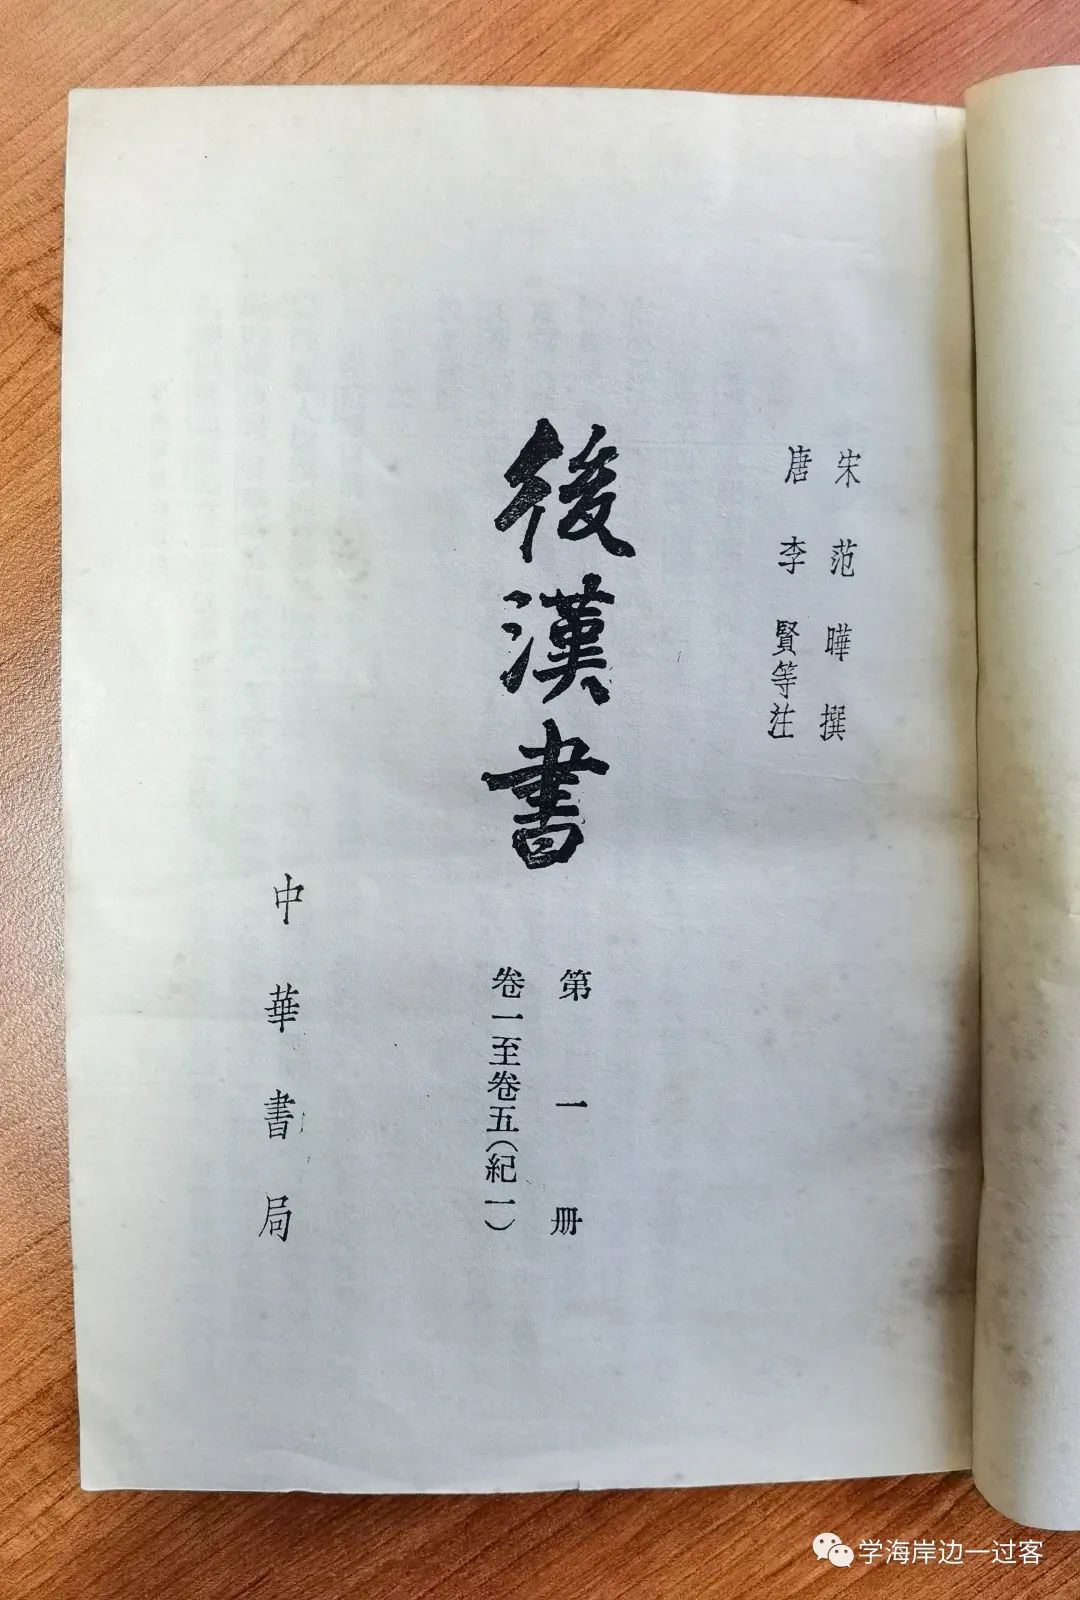 宋范曄撰
唐李賢等注
後漢書
第一册
卷一至卷五(紀一)
中華書局
学海岸边一过客